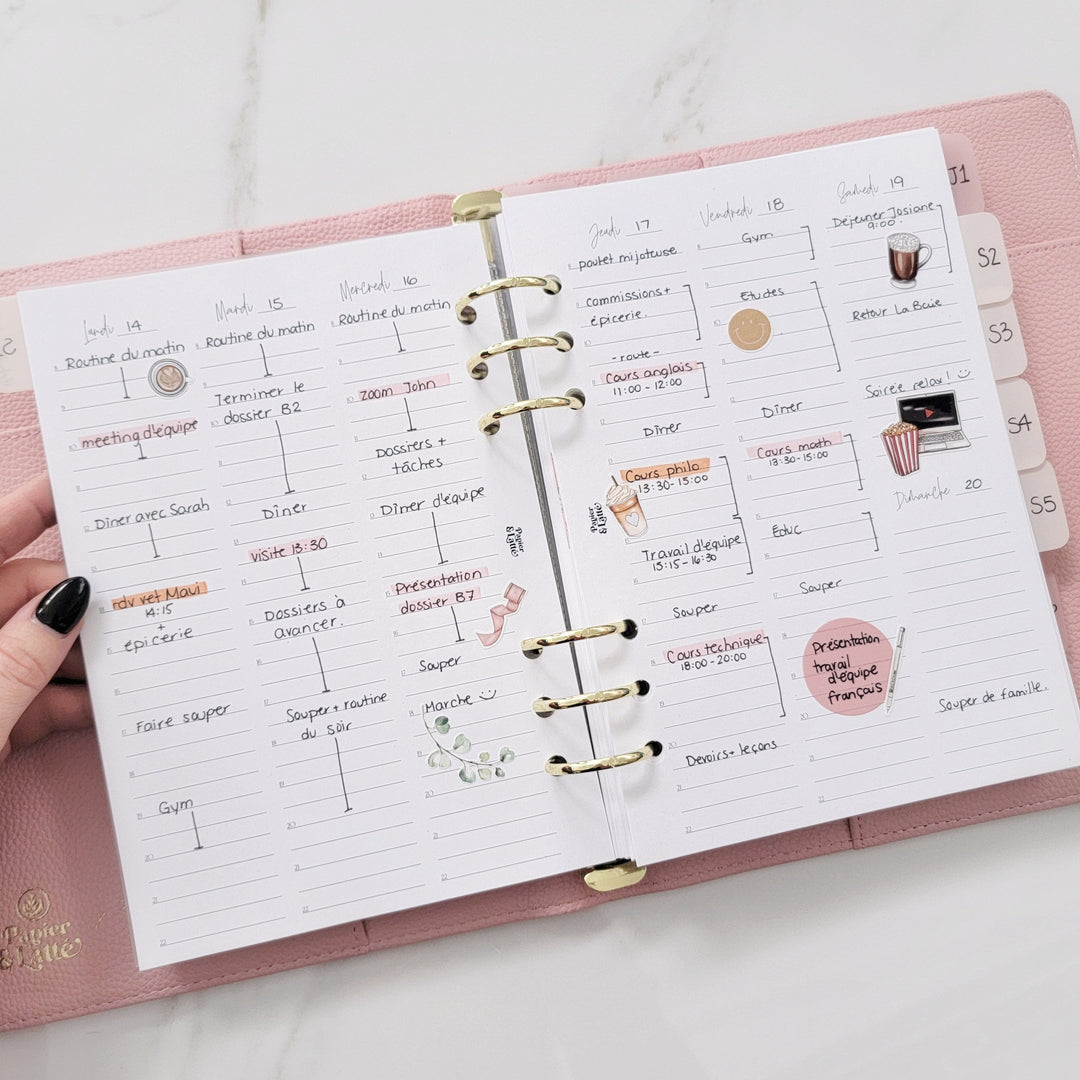 Lundi 14
Routine du matin
meeting d'équipe
Dîner avec Sarah
rdv vet Maui
14:15
+
épicerie
Faire souper
Gym
Mardi 15
Routine du matin
Terminer le
dossier B2
Dîner
visite 13:30
Dossiers à
avancer.
Souper + routine
du soir
Mercredi 16
Routine du matin
zoom John
Dossiers +
tâches
Dîner d'équipe
Présentation
dossier B7
Souper
Marche
Papier
& Latté
Jeudi 17
poulet mijoteuse
commissions +
épicerie.
- route -
Cours anglais
11:00 - 12:00
Dîner
Cours philo
13:30 - 15:00
Papier
& Latté
Travail d'équipe
15:15 - 16:30
Souper
Cours technique
18:00 - 20:00
Devoirs + leçons
Vendredi 18
Gym
Etudes
Dîner
Cours math
13:30 - 15:00
Educ
Souper
Présentation
travail
d'équipe
français
Samedi 19
Déjeuner Josiane
9:00
Retour La Baie
Soirée relax!
Dimanche 20
Souper de famille.
J1
S2
S3
S4
S5
Papier
& Latté